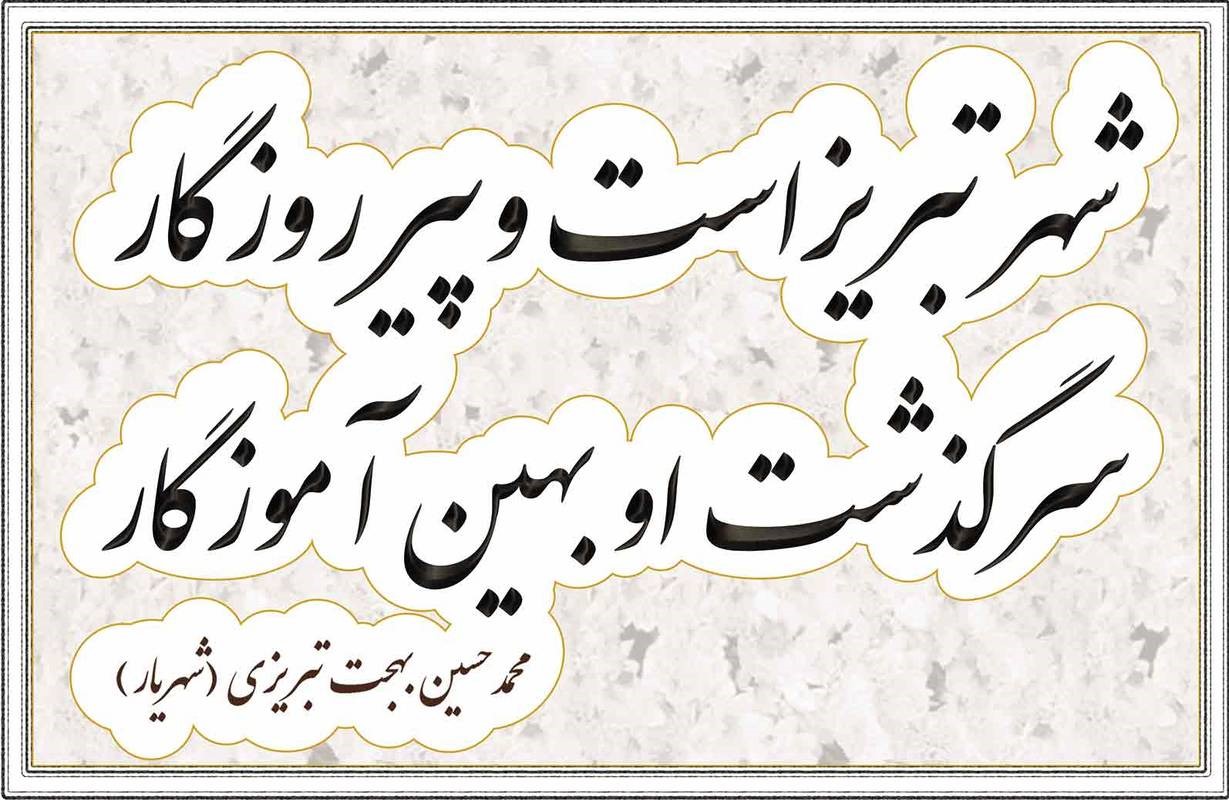 شهر تبریز است و پیر روزگار
سرگذشت او بهین آموزگار
محمد حسین بهجت تبریزی (شهریار)